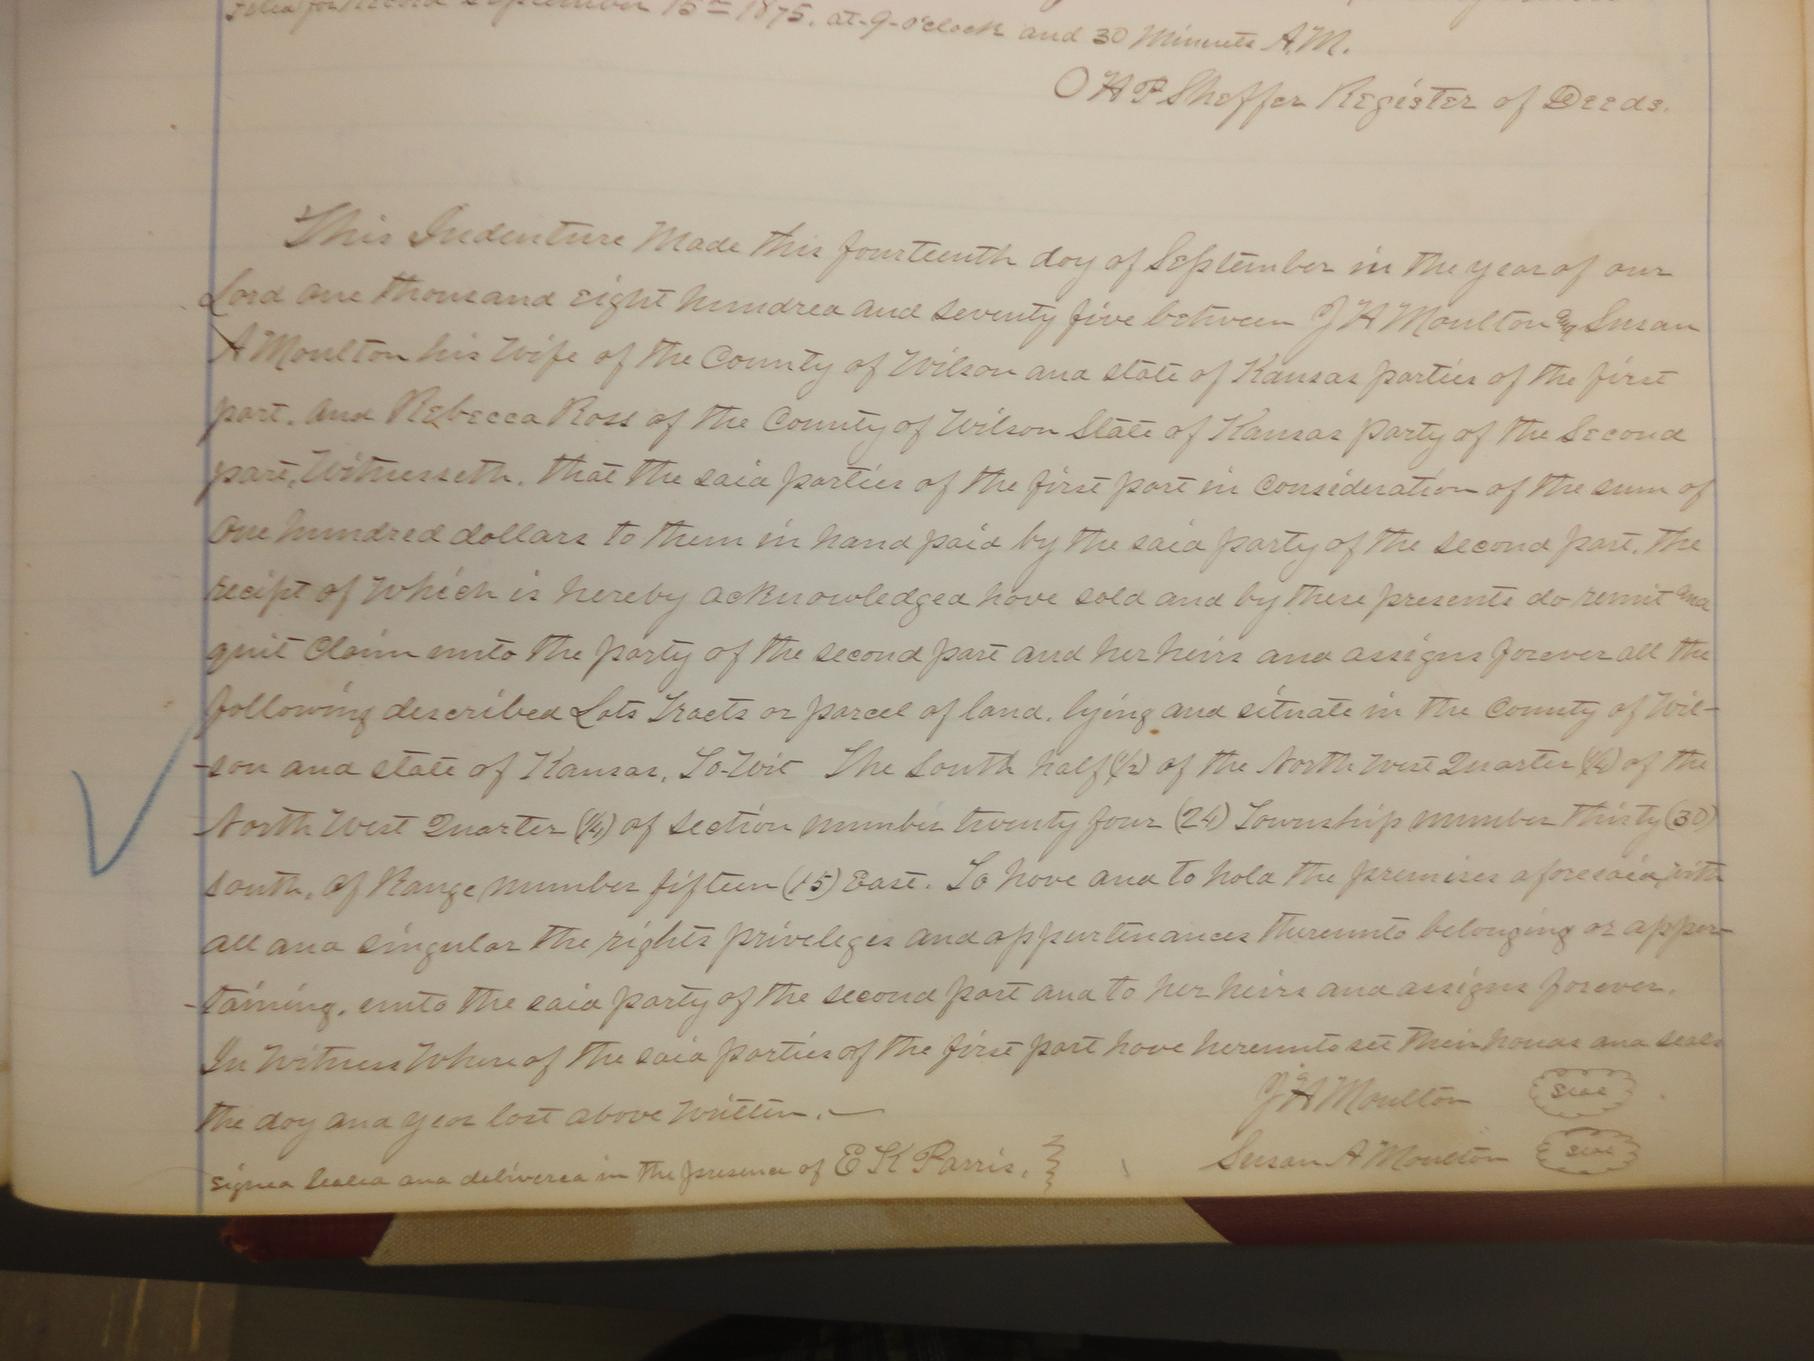 Filed for Record September 15th 1875. at 9-o'clock and 30 Minuets A.M.
O H P Sheffer Register of Deeds.
This Indenture Made this fourteenth day of September in the year of our
Lord one thousand eight hundred and seventy five between J H Moulton and Susan
A Moulton his Wife of the County of Wilson and state of Kansas parties of the first
part. and Rebecca Ross of the County of Wilson State of Kansas party of the Second
part, Witnesseth. that the said parties of the first part in consideration of the sum of
One hundred dollars to them in hand paid by the said party of the second part. the
recipt of Which is hereby acknowledged have sold and by these presents do remit and
quit Claim unto the party of the second part and her heirs and assigns forever all the
following described Lots Tracts or parcel of land. lying and situate in the County of Wil-
-son and state of Kansas, To-Wit The South half (1/2) of the North West Quarter (1/4) of the
North West Quarter (1/4) of section number twenty four (24) Township number thirty (30)
south, of Range number fifteen (15) East. To have and to hold the premises aforesaid, with
all and singular the rights priveleges and appurtenances thereunto belonging or apper-
-taining. unto the said party of the second part and to her heirs and assigns forever.
In Witness Whereof the said parties of the first part have hereunto set their hands and seals
the day and year last above Written.
J H Moulton seal
signed sealed and delivered in the presence of E K Parris.
Susan A Moulton seal